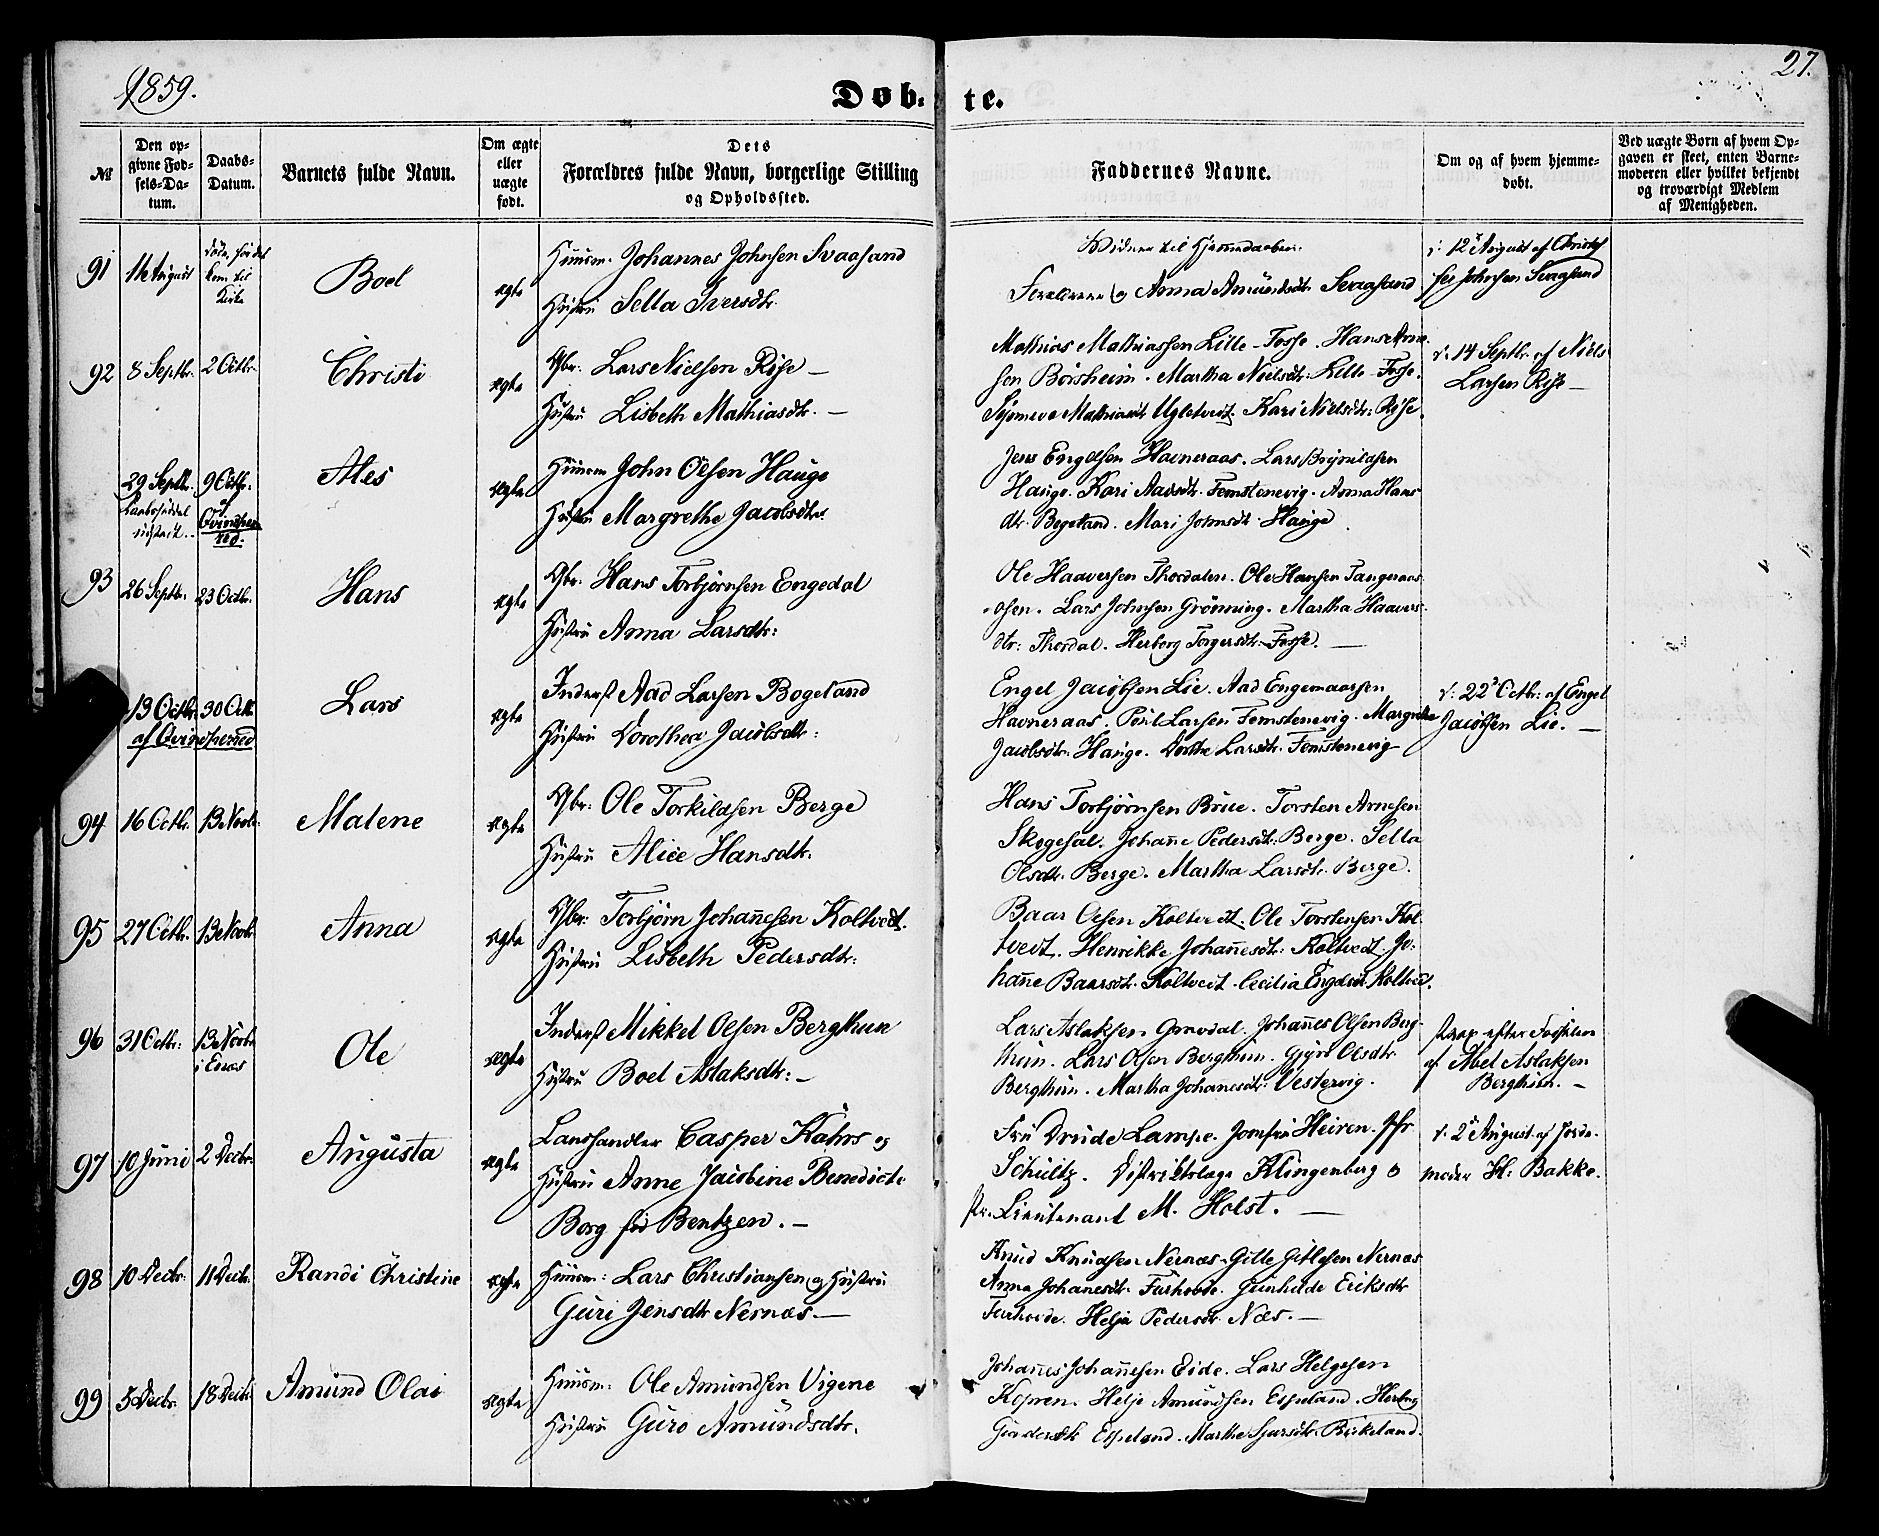 1859.
Døb-
te.
27.
№
Den op-
givne Fød-
sels-Da-
tum.
Daabs-
Datum.
Barnets fulde Navn.
Om ægte
eller
uægte
født.
Dets
Forældres fulde Navn, borgerlige Stilling
og Opholdssted.
Faddernes Navne.
Om og af hvem hjemme-
døbt.
Ved uægte Børn af hvem Op-
gaven er skeet, enten Barne-
moderen eller hvilket bekjendt
og troværdigt Medlem
af Menigheden.
91
August
døde før det
kom til
Kirke
Boel
ægte
Huusm. Johannes Johnsen Svaasand
Hustru Sella Iversdtr.
Vidner til Hjemmedaaben:
Forældrene og Anna Amundsdtr. Svaasand
d: 12te August af
Johnsen Svaasand
92
8 Septbr.
2 Octbr.
Christi
ægte
Gbr. Lars Nielsen Röse —
Hustru Lisbeth Mathiasdtr. —
Mathias Mathiassen Lille-Fosse. Hans Arne-
sen Börsheim. Martha Nielsdtr. Lille-Fosse.
Mathiasdt Ugletveit. Kari Nielsdtr: Röse.
d: 14 Septbr. af Niels
Larsen Röse —
29 Septb.
9 Octbr.
af
Qvindher-
red.
Ales
ægte
Huusm John Olsen Hauge
Hustru Margrethe Jacobsdtr.
Jens Engelsen Havneraas. Lars Brynildsen
Hauge. Kari Aadsdtr. Femstenevig. Anna Hans-
dtr. Bogeland. Mari Johnsdt. Hauge.
93
26 Septbr.
23 Octbr.
Hans
ægte
Gbr. Hans Torbjörnsen Engedal
Hustru Anna Larsdtr:
Ole Haaversen Thordalen. Ole Hansen Tangeraas-
osen. Lars Johnsen Grönning. Martha Haavers-
dtr: Thordal. Herborg Torgersdtr. Fosse. —
13 Octbr.
30 Octb.
af Qvindherred
Lars
ægte
Inderst Aad Larsen Bogeland
Hustru Dorothea Jacobsdtr:
Engel Jacobsen Lie. Aad Engemaarsen
Havneraas. Poul Larsen Femstenevig. Margrethe
Jacobsdtr. Hauge. Dorthe Larsdtr. Femstenevig
d: 22de Octbr. af Engel
Jacobsen Lie. —
94
16 Octbr.
13 Novbr.
Malene
ægte
Gbr: Ole Torkildsen Berge
Hustru Alice Hansdtr.
Hans Torbjörnsen Brue. Torsten Arnesen
Skogesal. Johanne Pedersdt. Berge. Sella
Olsdtr. Berge. Martha Larsdtr. Berge.
95
27 Octbr.
13 Novbr
Anna
ægte
Gbr: Torbjörn Johannesen Koltvedt.
Hustru Lisbeth Pedersdtr:
Baar Olsen Koltvedt. Ole Torstensen Kol-
tvedt. Henrikke Johannesdt: Koltvedt. Jo-
hanne Baarsdt. Koltvedt. Cecilia Engelsdt. Koltvedt.
96
31 Octbr:
13 Novbr
i Enæs
Ole
ægte
Inderst Mikkel Olsen Bergthun
Hustru Boel Aslaksdtr: —
Lars Aslaksen Gravdal. Johannes Olsen Berg-
thun. Lars Olsen Bergthun. Gjyri Olsdtr.
Bergthun. Martha Johanesdtr: Vestervig.
strax efter Födselen
af Abel Aslaksen
Bergthun. —
97
10 Juni
2 Decbr.
Augusta
ægte
Landhandler Casper Kahrs og
Hustru Anne Jacobine Benedicte
Borg föd Bentzen. —
Fru Drude Lampe. Jomfru Heiren. Jfr
Schultz. Distriktslæge Klingenberg o
Lieutenant M. Holst. —
d. 2de August af Jorde-
moder H: Bakke.
98
10 Decbr.
11 Decbr.
Randi Christine
ægte
Huusm: Lars Christiansen og Hustru
Guri Jensdtr. Nernæs. —
Knud Knudsen Nernæs. Gitle Gitlesen Nernæs
Anna Johanesdt. Furhovde. Gunhilde Eriksdtr
Furhovde. Helja Pedersdt. Næs. —
99
5 Decbr.
18 Decbr
Amund Olai
ægte
Huusm: Ole Amundsen Vigene
Hustru Guro Amundsdtr.
Johannes Johannesen Eide. Lars Helgesen
Kopren. Helje Amundsen Espeland. Herborg
Espeland. Marthe Sjursdt. Birkeland.